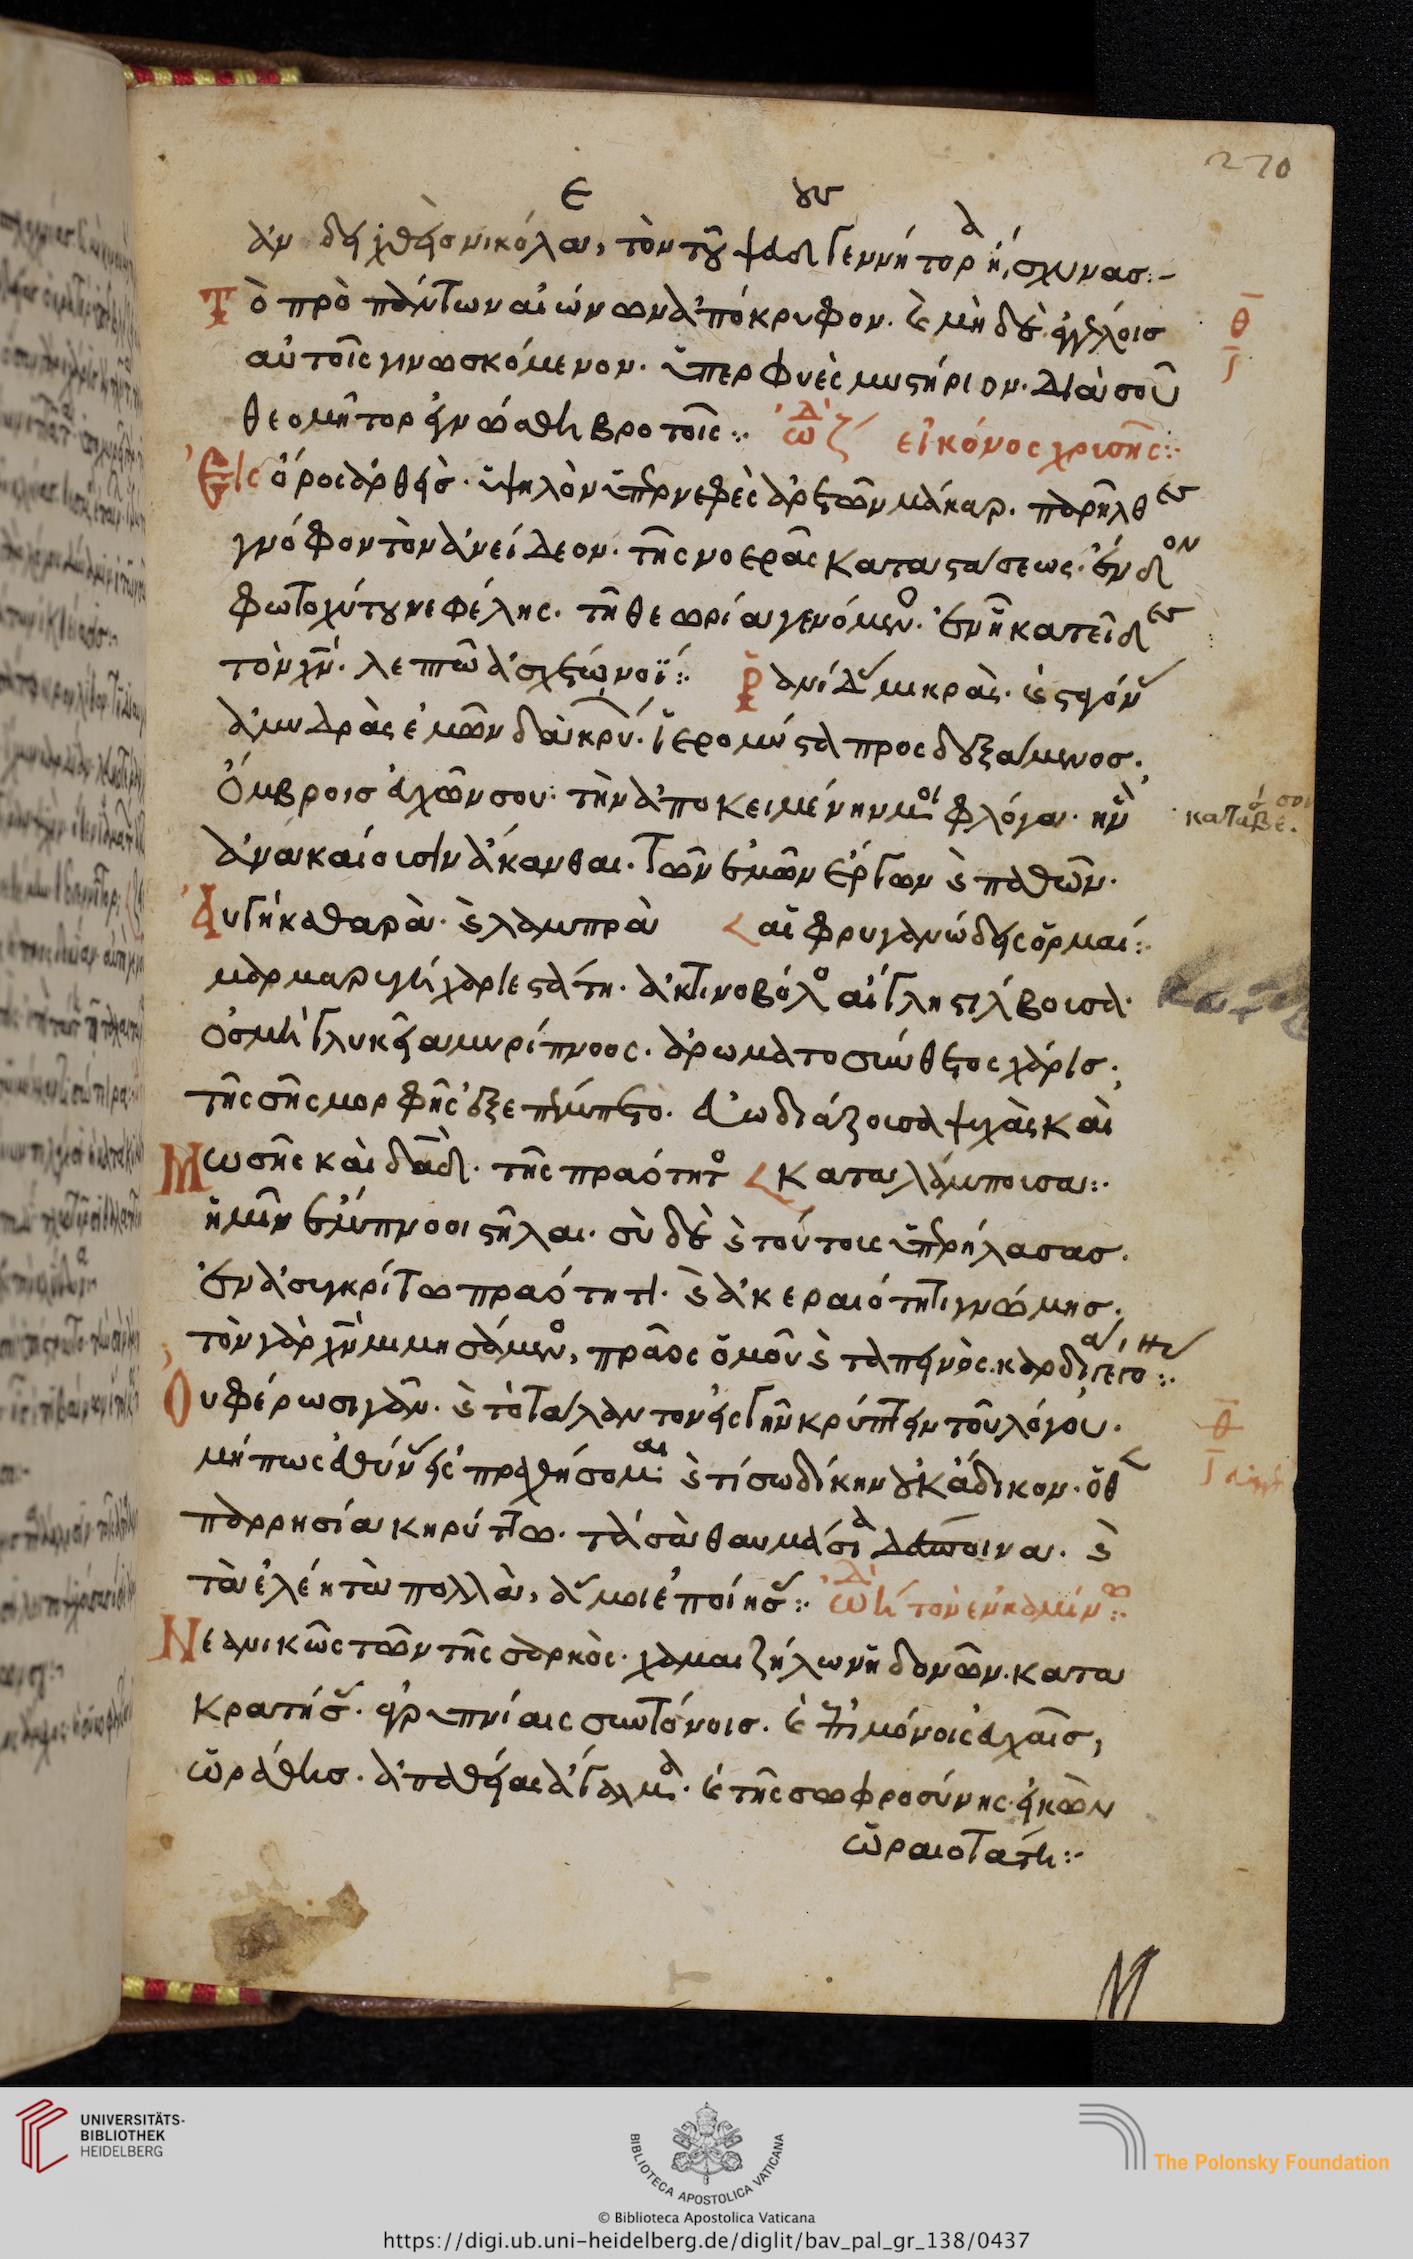 270
ἀναδειχθεὶς νικόλαε, τὸν τοῦ ψεύδους γεννήτορα ἤσχυνας:-
Τὸ πρὸ πάντων αἰώνων ἀπόκρυφον. καὶ μηδὲ ἀγγέλοις
αὐτοῖς γινωσκόμενον. ὑπερφυὲς μυστήριον. διὰ σοῦ
θεομῆτορ ἐγνώσθη βροτοῖς:· ᾠδ ζ εἰκόνος χρυσῆς:·
Εἰς ὄρος ἀρθεὶς. ὑψηλὸν ὑπερνεφὲς ἀρετῶν μάκαρ. παρῆλθες
γνόφον τὸν ἀνείδεον. τῆς νοερᾶς καταστάσεως. ἔνδον
φωτοχύτου νεφέλης. τῆ θεωρία γενόμενος. ἐν ἧ κατεῖδες
τὸν χν. λεπτῶ ἀσχέτω νοΐ:· Ρανίδας μικρὰς. καὶ
ἀμυδρὰς ἐμῶν δακρύων. ἱερομύστα προσδεξάμενος.
ὄμβροις εὐχῶν σου. τὴν ἀποκειμένην μοι φλόγα. ἣν
κατάσβεσον.
ἀνακαίουσιν ἄκανθαι. τῶν ἐμῶν ἔργων καὶ παθῶν.
Αὐγὴ καθαρὰ. καὶ λαμπρὰ αἱ φρυγανώδεις ὁρμαί:·
μαρμαρυγὴ χαριεστάτη. ἀκτινοβόλος αἴγλη στίλβουσα.
ὀσμὴ γλυκεῖα μυρίπνοος. ἀρωματοσύνθετος χάρις.
τῆς σῆς μορφῆς ἐξεπέμπετο. εὐωδιάζουσα ψυχὰς καὶ
Μωσῆς καὶ δαδ. τῆς πραότητος καταλάμπουσα:·
ἡμῖν ἔμπνοοι στῆλαι. σὺ δὲ καὶ τούτοις ὑπερήλασας.
ἐν ἀσυγκρίτω πραότητι. καὶ ἀκεραιότητι γνώμης.
τὸν γὰρ χν μιμησάμενος, πρᾶος ὁμοῦ καὶ ταπεινὸς. καρδία
Οὐ φέρω σιγᾶν. καὶ τὸ τάλαντον εἰς γῆν κρύπτειν τοῦ λόγου.
μήπως εὐθύνας εἰσπραχθήσομαι καὶ τίσω δίκην οὐκ ἄδικον. ὅθεν
παρρησία κηρύττω. τὰ σὰ θαυμάσια δέσποινα. καὶ
τὰ ἐλέη τὰ πολλὰ, ἅ μοι ἐποίησας:· ᾠδ η τὸν ἐν καμίνω:·
Νεανικῶς τῶν τῆς σαρκὸς. χαμαιζήλων ἡδονῶν. κατα
κρατήσας. ἀγρυπνίαις συντόνοις. καὶ ἐπιμόνοις εὐχαῖς,
ὡράθης. ἀπαθείας ἄγαλμα. καὶ τῆς σωφροσύνης. εἰκὼν
ὡραιοτάτη:·
UNIVERSITÄTS-
BIBLIOTHEK
HEIDELBERG
BIBLIOTECA APOSTOLICA VATICANA
The Polonsky Foundation
© Biblioteca Apostolica Vaticana
https://digi.ub.uni-heidelberg.de/diglit/bav_pal_gr_138/0437